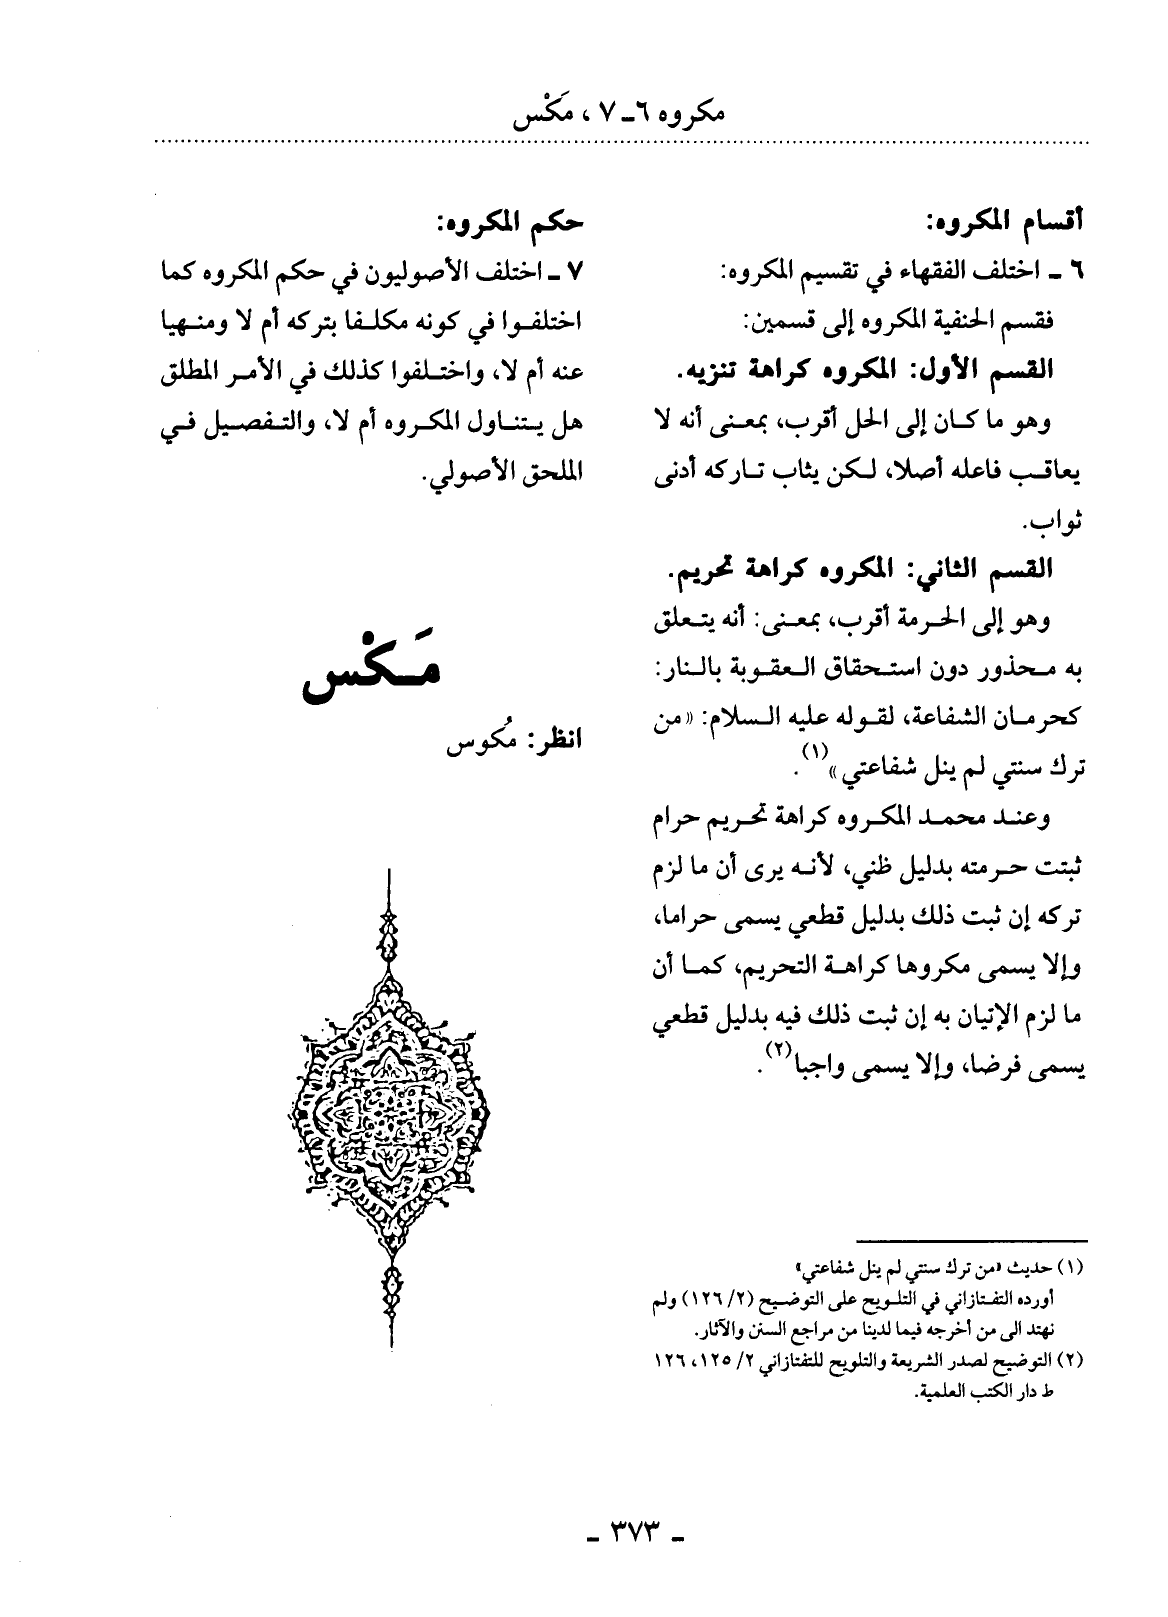 مكروه ٦ـ٧ ، مَكْس
أقسام المكروه:
٦ ـ اختلف الفقهاء في تقسيم المكروه:
فقسم الحنفية المكروه إلى قسمين:
القسم الأول: المكروه كراهة تنزيه.
وهو ما كان إلى الحل أقرب، بمعنى أنه لا
يعاقب فاعله أصلا، لكن يثاب تاركه أدنى
ثواب.
القسم الثاني: المكروه كراهة تحريم.
وهو إلى الحرمة أقرب، بمعنى: أنه يتعلق
به محذور دون استحقاق العقوبة بالنار:
كحرمان الشفاعة، لقوله عليه السلام: «من
ترك سنتي لم ينل شفاعتي»(١).
وعند محمد المكروه كراهة تحريم حرام
ثبتت حرمته بدليل ظني، لأنه يرى أن ما لزم
تركه إن ثبت ذلك بدليل قطعي يسمى حراما،
وإلا يسمى مكروها كراهة التحريم، كما أن
ما لزم الإتيان به إن ثبت ذلك فيه بدليل قطعي
يسمى فرضا، وإلا يسمى واجبا(٢).
(١) حديث «من ترك سنتي لم ينل شفاعتي»
أورده التفتازاني في التلويح على التوضيح (٢/ ١٢٦) ولم
نهتد الى من أخرجه فيما لدينا من مراجع السنن والآثار.
(٢) التوضيح لصدر الشريعة والتلويح للتفتازاني ٢/ ١٢٥، ١٢٦
ط دار الكتب العلمية.
حكم المكروه:
٧ ـ اختلف الأصوليون في حكم المكروه كما
اختلفوا في كونه مكلفا بتركه أم لا ومنهيا
عنه أم لا، واختلفوا كذلك في الأمر المطلق
هل يتناول المكروه أم لا، والتفصيل في
الملحق الأصولي.
مَكْس
انظر: مُكوس
ـ ٣٧٣ ـ